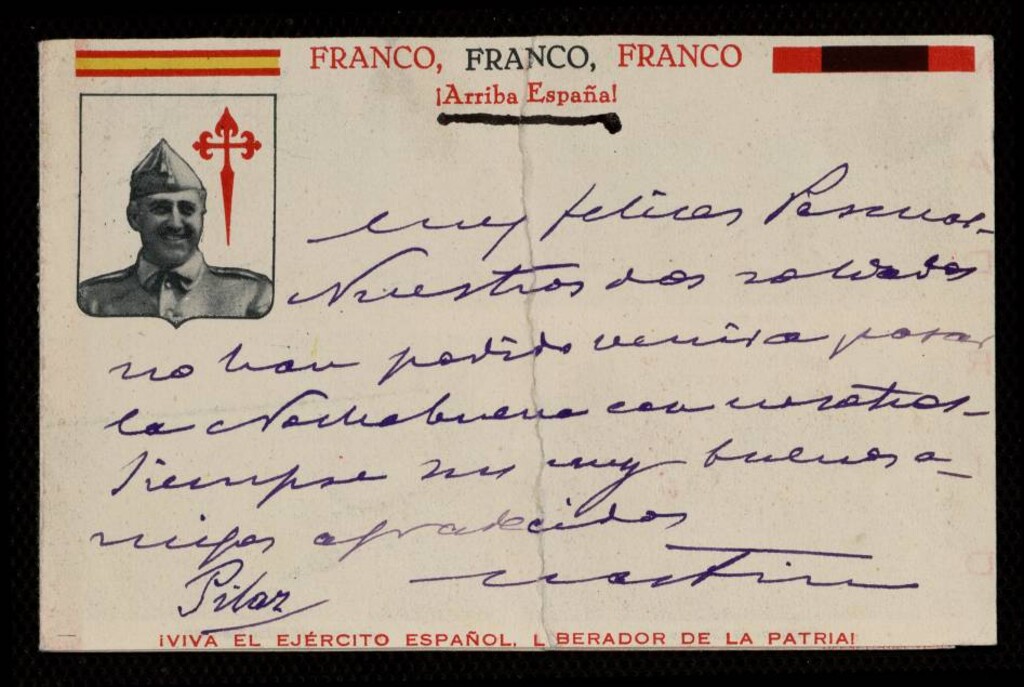 FRANCO, FRANCO, FRANCO
¡Arriba España!
muy felices Pascuas.
Nuestros dos soldados
no han podido venir a pasar
la Nochebuena con nosotros.
Siempre sus muy buenos a-
migos agradecidos
Pilar Martin
¡VIVA EL EJÉRCITO ESPAÑOL, L BERADOR DE LA PATRIA!